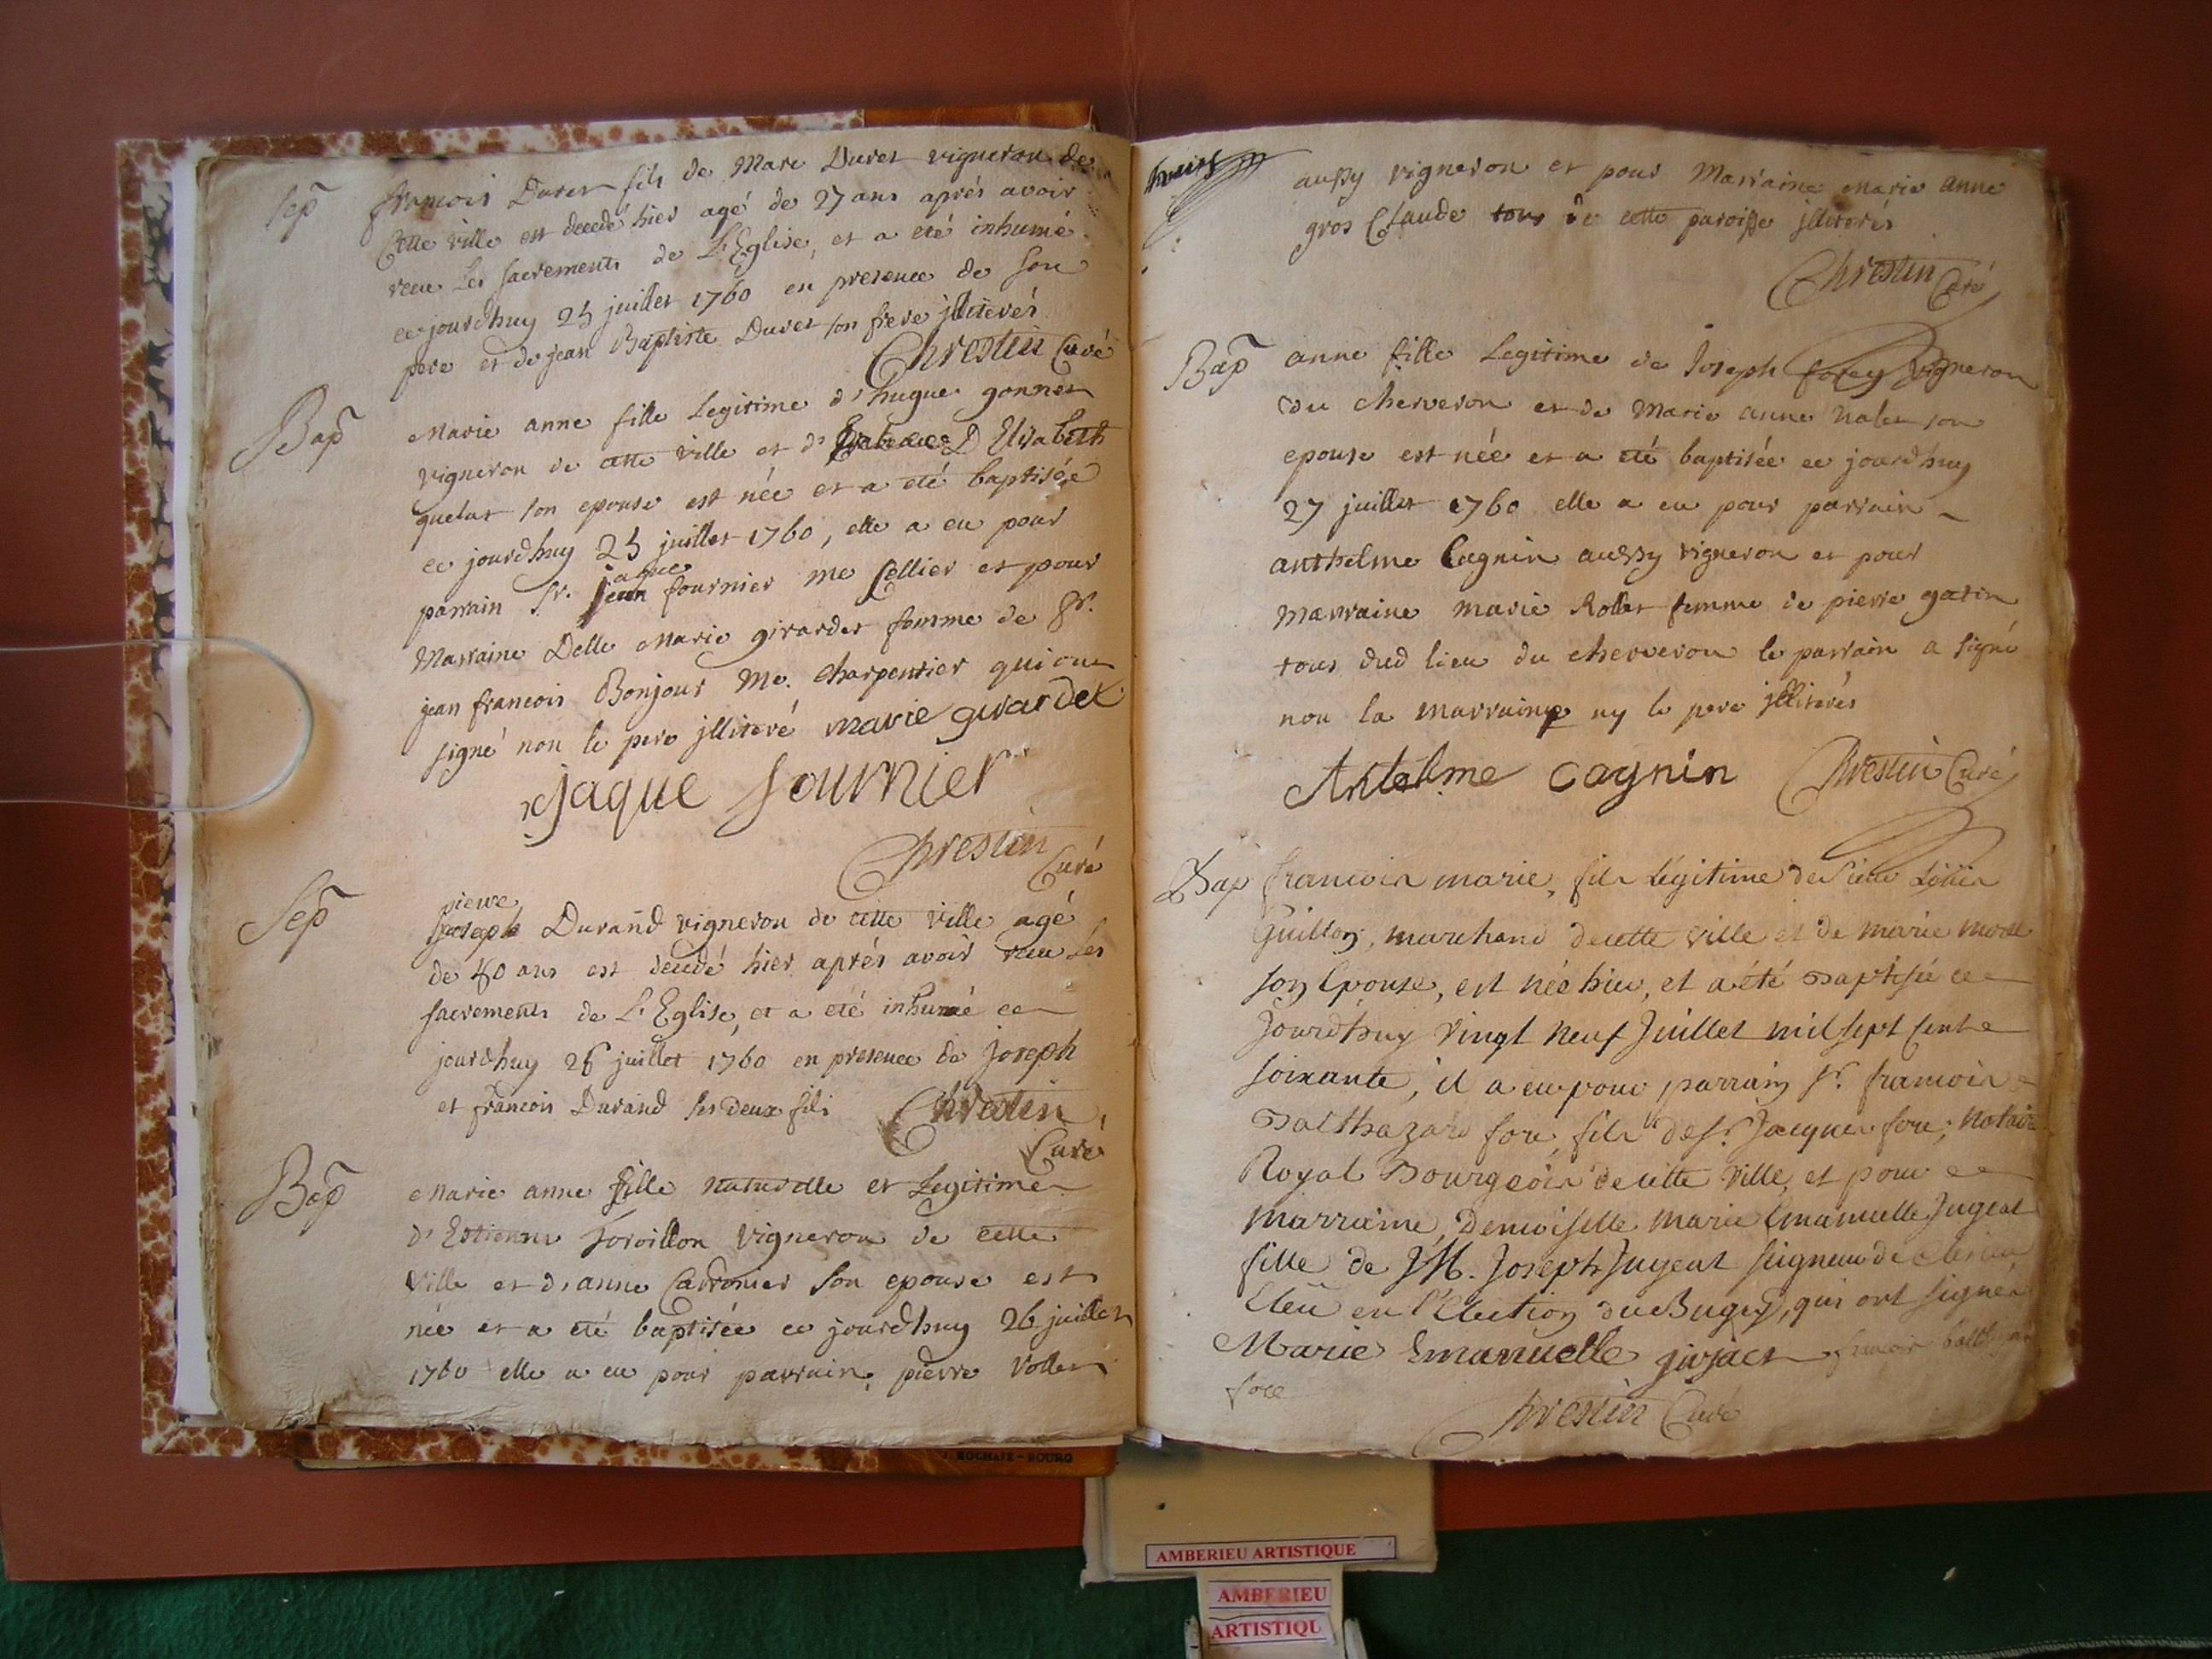 Sep
francois Duret fils de Marc Duret vigneron de
Cette ville est decedé hier agé de 27 ans aprés avoir
receu Les sacrements de L'Eglise, et a eté inhumé
ce jourdhuy 25 juillet 1760 en presence de son
pere et de jean Baptiste Duret son frere jlliterés
Chrestin Curé
Bap
Marie anne fille Legitime d'hugue gonnet
vigneron de cette ville et d' D Elisabeth
quelut son epouse est née et a eté baptisée
ce jourdhuy 25 juillet 1760, elle a eu pour
parrain Sr. jaque fournier me sellier et pour
Marraine Delle Marie girardet femme de Sr.
jean francois Bonjour Me. charpentier qui ont
signé non le pere jlliteré marie girardet
jaque fournier
Chrestin
Curé
Sep
pierre
joseph Durand vigneron de cette ville agé
de 40 ans est decedé hier aprés avoir receu Les
sacrements de L'Eglise, et a eté inhumé ce
jourdhuy 26 juillet 1760 en presence de Joseph
et francois Durand ses deux fils Chrestin
Curé
Bap
Marie anne fille naturelle et Legitime
d'Estienne vigneron de cette
ville et d'anne son epouse est
née et a eté baptisée ce jourdhuy 26 juillet
1760 elle a eu pour parrain, pierre Vollet
aussy vigneron et pour Marraine Marie anne
gros Claude tous de cette paroisse jlliterés
Chrestin Curé
Bap
anne fille Legitime de Joseph forey vigneron
du cherveron et de Marie anne son
epouse est née et a eté baptisée ce jourdhuy
27 juillet 1760 elle a eu pour parrain
anthelme Cagnin aussy vigneron et pour
marraine marie Rollet femme de pierre garin
tous dud lieu du cherveron le parrain a signé
non la marraine ny le pere jlliterés
Antelme cagnin Chrestin Curé
Bap
francois marie, fils Légitime de Sieur
Guillon, marchand de cette ville et de marie morel
son Epouse, est né hier, et a été Baptisé ce
Jourdhuy vingt neuf Juillet mil sept cent
soixante, il a eu pour parrain Sr. francois
Balthazard fore, fils de Sr. Jacques fore, Notaire
Royal Bourgeois de cette ville, et pour
marraine, Demoiselle marie Emanuelle Jugeat
fille de Joseph Jugeat seigneur de
Eleu en l'Election du Bugey, qui ont signés
Marie Emanuelle francois
fore
Chrestin Curé
ROCHAIX - BOURG
AMBERIEU ARTISTIQUE
AMBERIEU
ARTISTIQU